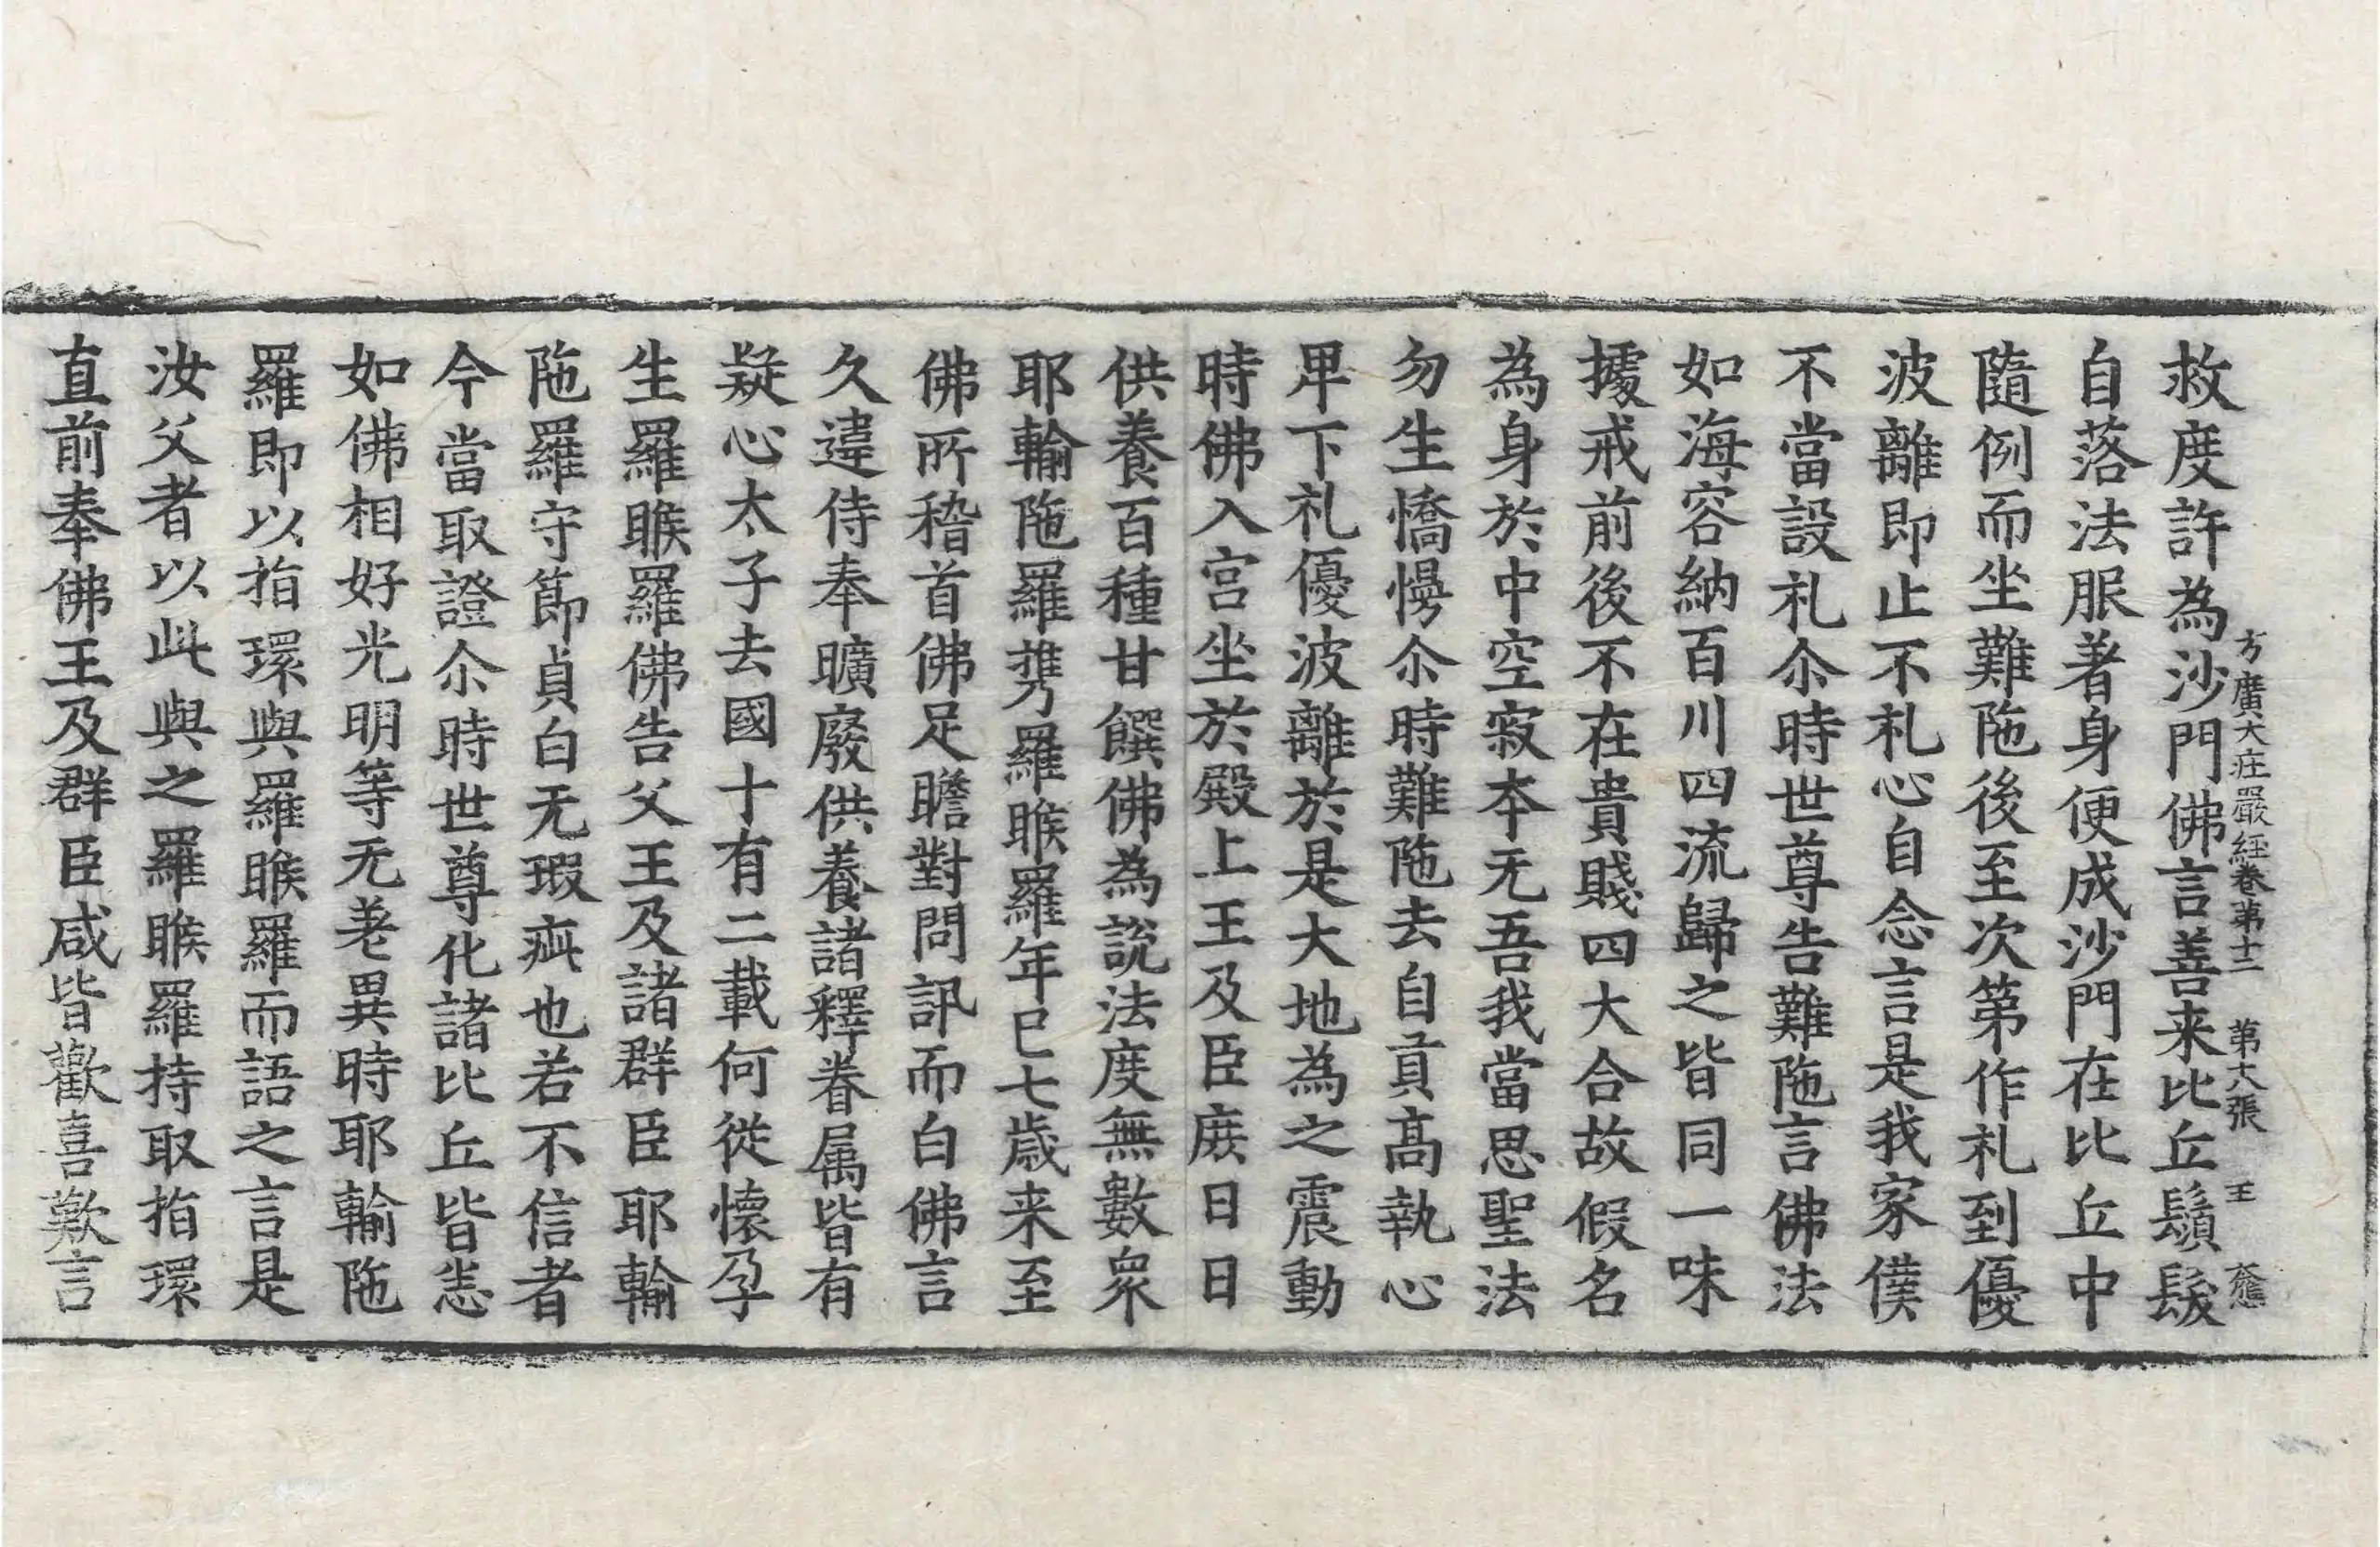 救度許為沙門佛言善来比丘鬚髮
方廣大庄嚴經卷第十二 第大張 王
自落法服著身便成沙門在比丘中
隨例而坐難陁後至次第作礼到優
波離即止不礼心自念言是我家僕
不當設礼尒時世尊告難陁言佛法
如海容納百川四流歸之皆同一味
據戒前後不在貴賤四大合故假名
為身於中空寂本无吾我當思聖法
勿生憍慢尒時難陁去自貢髙執心
卑下礼優波離於是大地為之震動
時佛入宫坐於殿上王及臣庶日日
供養百種甘饌佛為説法度無數衆
耶輸陁羅攜羅睺羅年已七歳来至
佛所稽首佛足瞻對問訊而白佛言
久違侍奉曠廢供養諸釋眷属皆有
疑心太子去國十有二載何從懷孕
生羅睺羅佛告父王及諸群臣耶輸
陁羅守節貞白无瑕疵也若不信者
今當取證尒時世尊化諸比丘皆悉
如佛相好光明等无差異時耶輸陁
羅即以指環與羅睺羅而語之言是
汝父者以此與之羅睺羅持取指環
直前奉佛王及群臣咸皆歡喜歎言